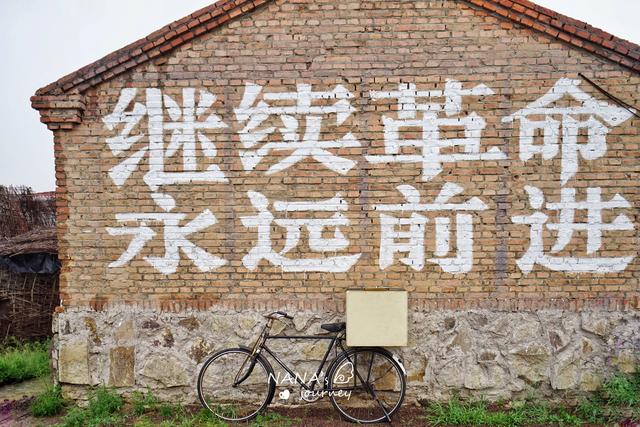 继续革命
永远前进
NANA's
Journey